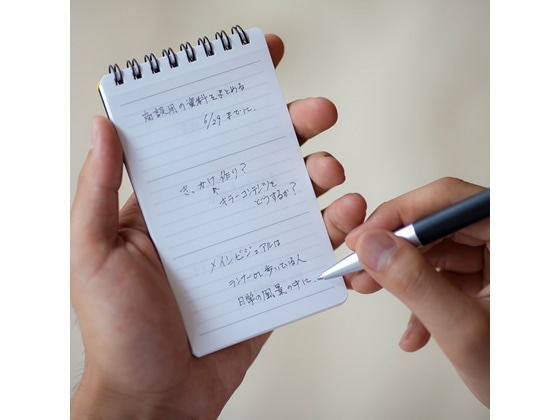 商談用の資料をまとめる
6/29 までに、
きっかけ作り?
キラーコンテンツを
どうするか?
メインビジュアルは
ランナーor歩いている人
日常の風景の中に、